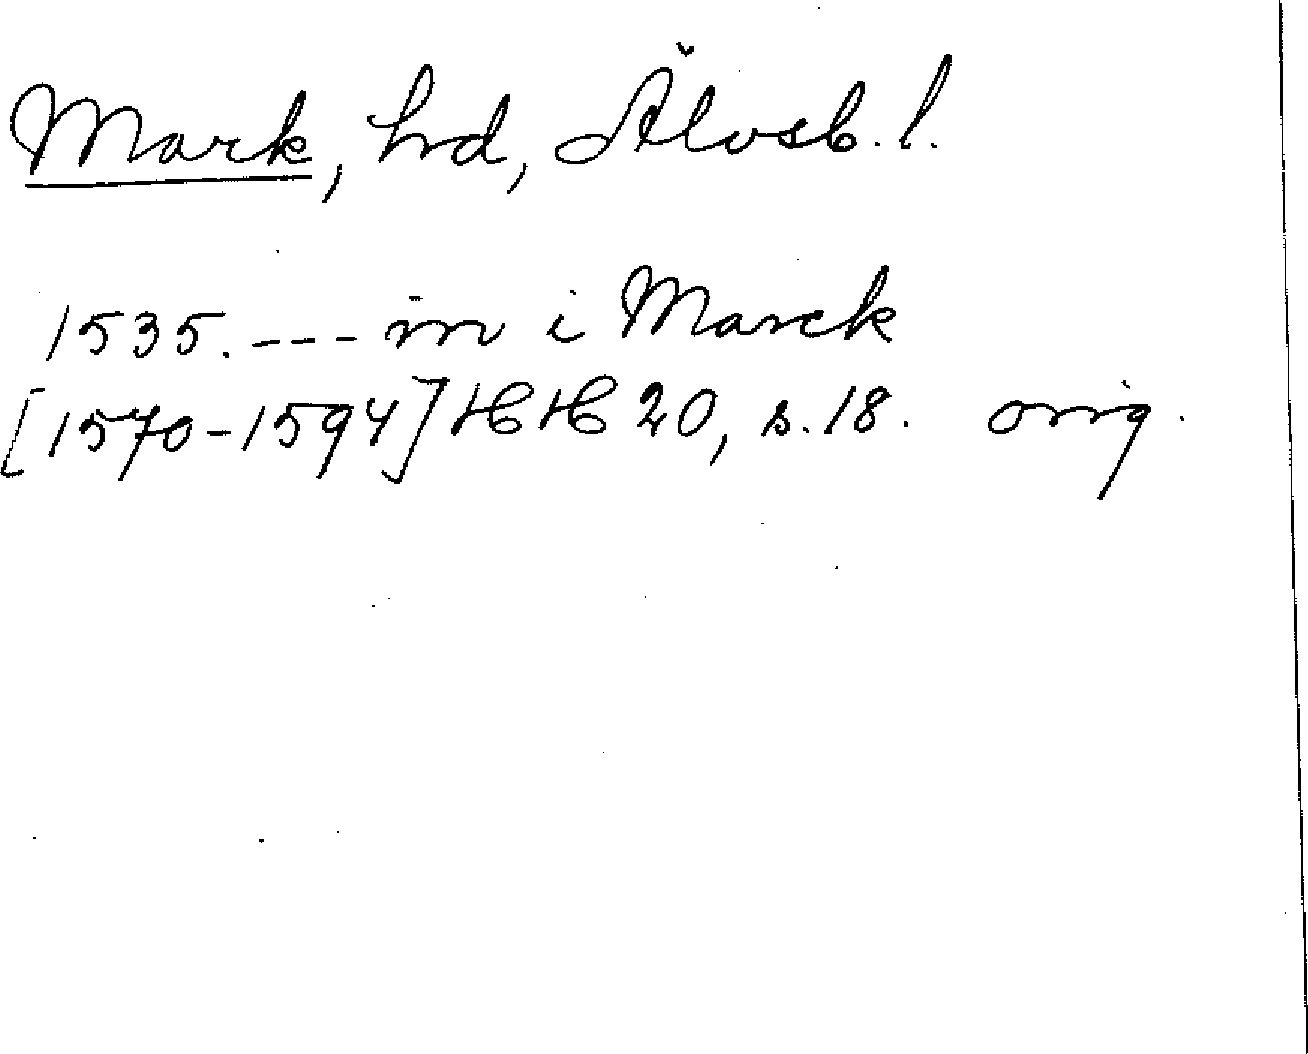 Mark, hd, Älvsb. l.
1535. --- in i Marck
[1570-1594] HH 20, s. 18. orig.